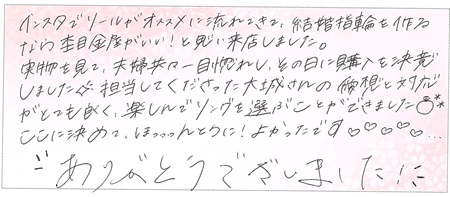 インスタでリールがオススメに流れてきて、結婚指輪を作る
なら杢目金屋がいい!と思い来店しました。
実物を見て、夫婦共々一目惚れし、その日に購入を決意
しました☆彡 担当してくださった大城さんの愛想と対応
がとても良く、楽しんでリングを選ぶことができました
ここに決めて、ほっっんとうに!よかったです♡♡♡♡♡…
ありがとうございました!